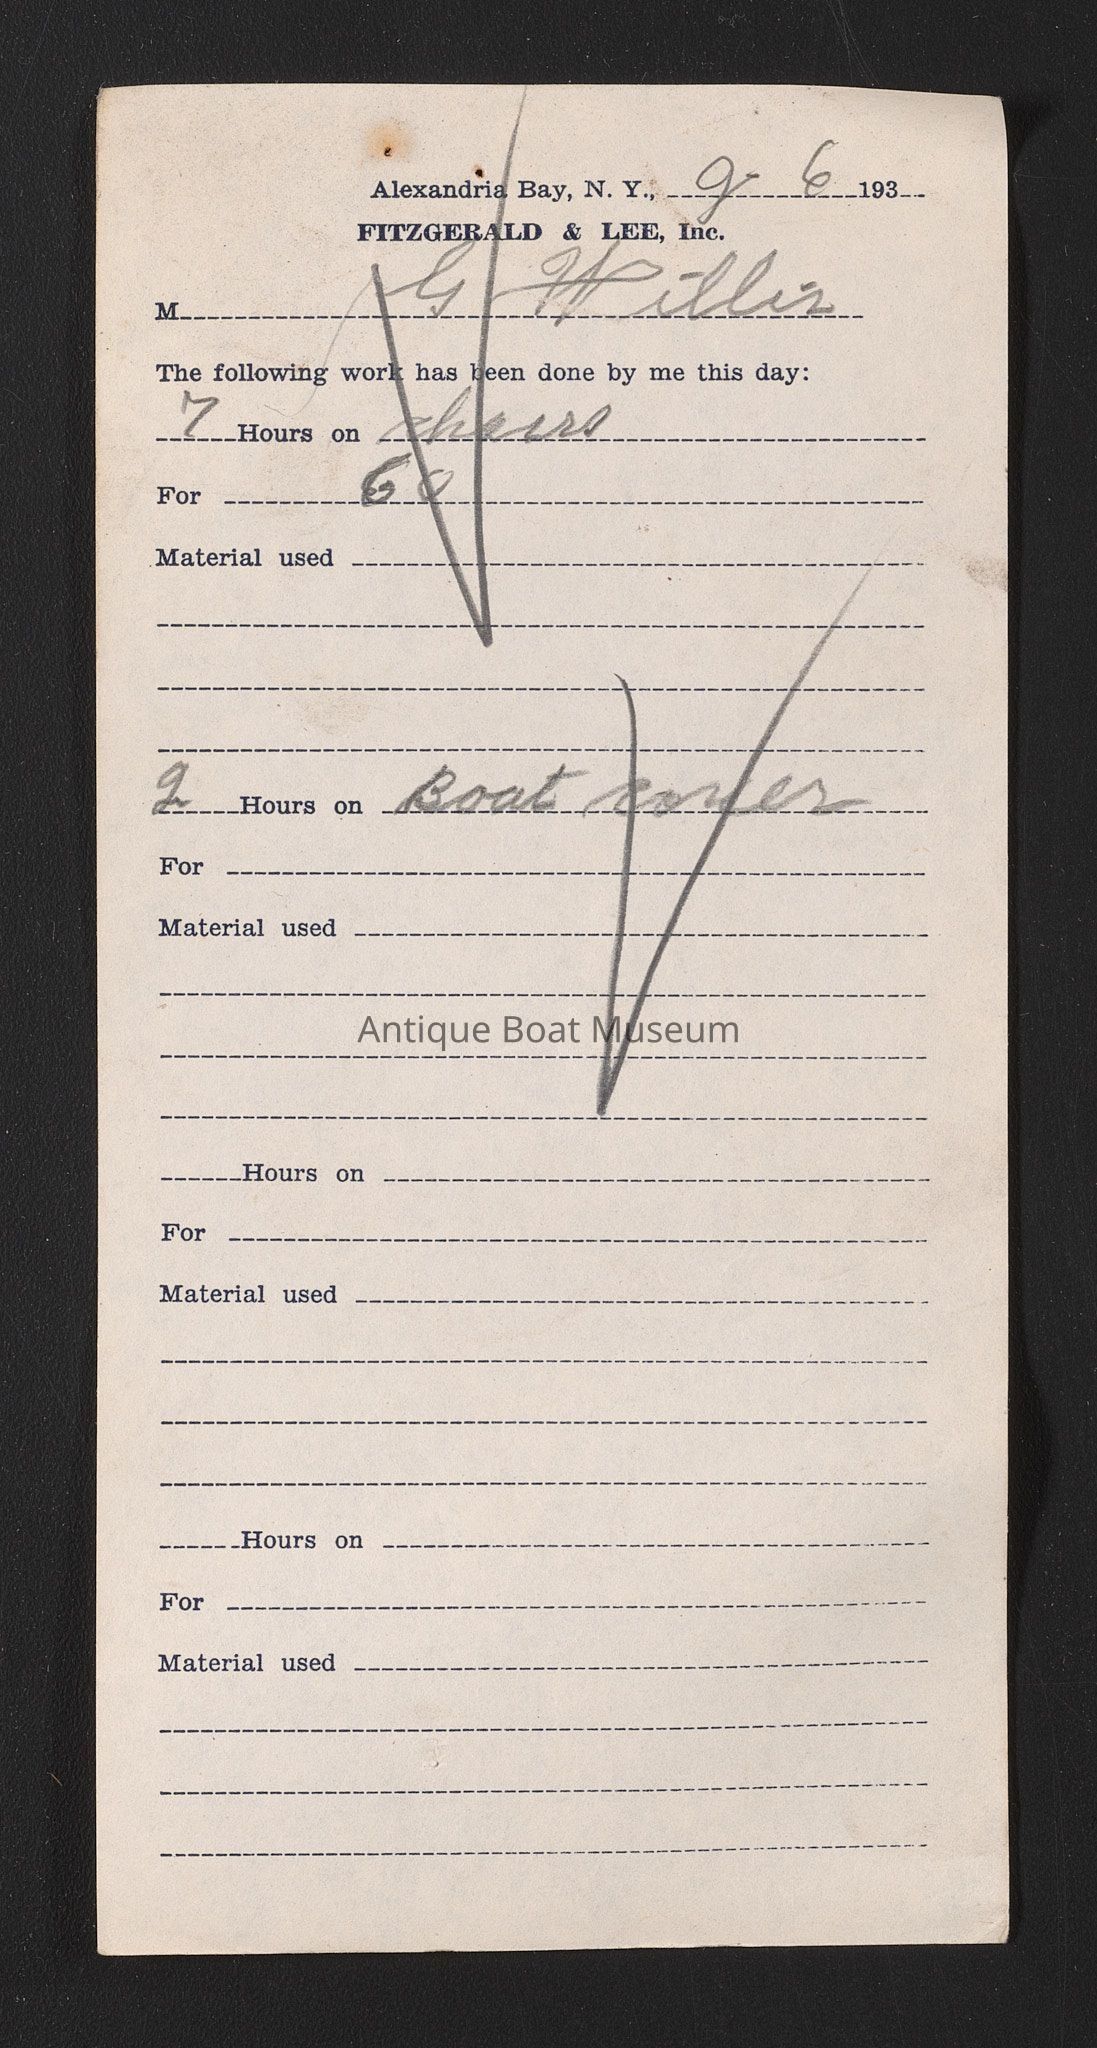 Alexandria Bay, N. Y., 9 6 193
FITZGERALD & LEE, Inc.
M G Willix
The following work has been done by me this day:
7 Hours on chairs
For 60
Material used
2 Hours on Boat cover
For
Material used
Antique Boat Museum
Hours on
For
Material used
Hours on
For
Material used